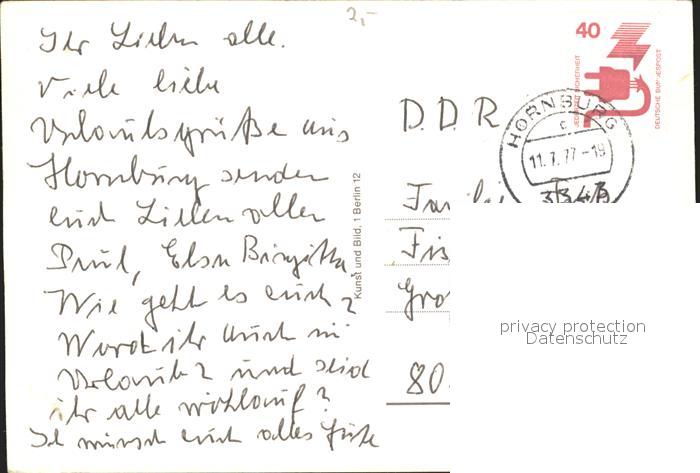 2,-
Ihr Lieben alle.
Viele liebe
Urlaubsgrüße aus
Hornburg senden
euch Lieben allen
Paul, Elsa Birgitta.
Wie geht es euch?
Wart ihr auch in
Urlaub? und seid
ihr alle wohlauf?
Ich wünsch euch alles Gute
Kunst und Bild, 1 Berlin 12
40
JEDERZEIT SICHERHEIT
DEUTSCHE BUNDESPOST
HORNBURG
c
11.7.77-19
D.D.R
Fis
Gro
80
privacy protection
Datenschutz